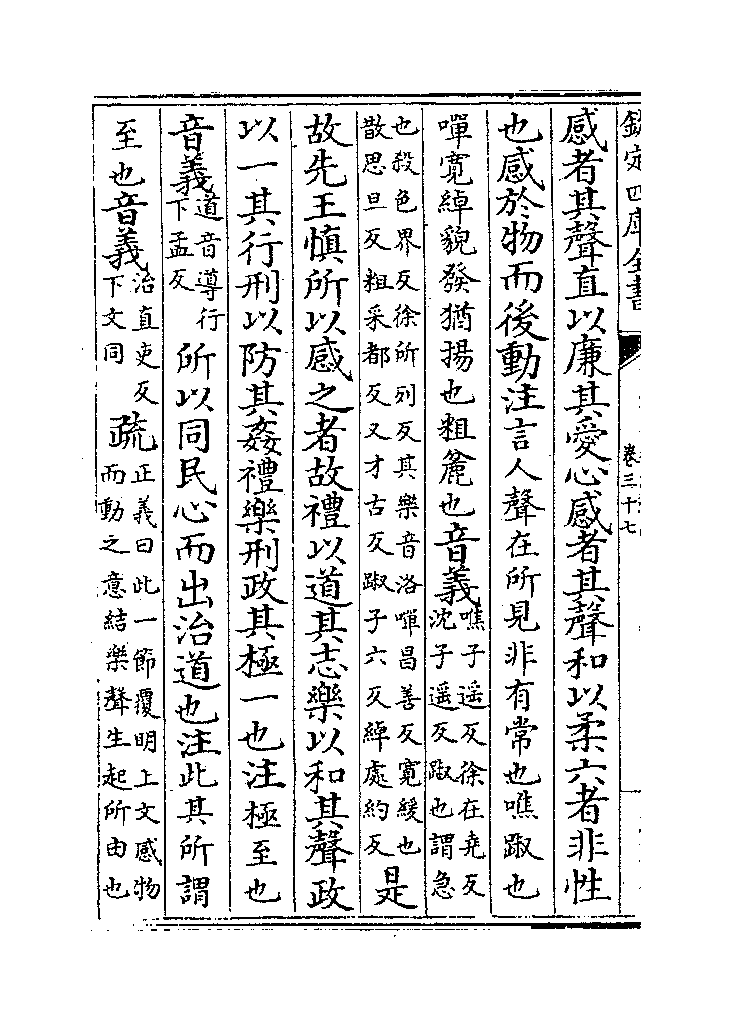 欽定四庫全書
卷三十七
感者其聲直以廉其愛心感者其聲和以柔六者非性
也感於物而後動注言人聲在所見非有常也噍踧也
嘽寬綽貌發猶揚也粗麄也音義噍子遥反徐在堯反沈子遥反踧也謂急
也殺色界反徐所列反其樂音洛嘽昌善反寛緩也散思旦反粗采都反又才古反踧子六反綽處約反是
故先王慎所以感之者故禮以道其志樂以和其聲政
以一其行刑以防其姦禮樂刑政其極一也注極至也
音義道音導行下孟反所以同民心而出治道也注此其所謂
至也音義治直吏反下文同疏正義曰此一節覆明上文感物而動之意結樂聲生起所由也